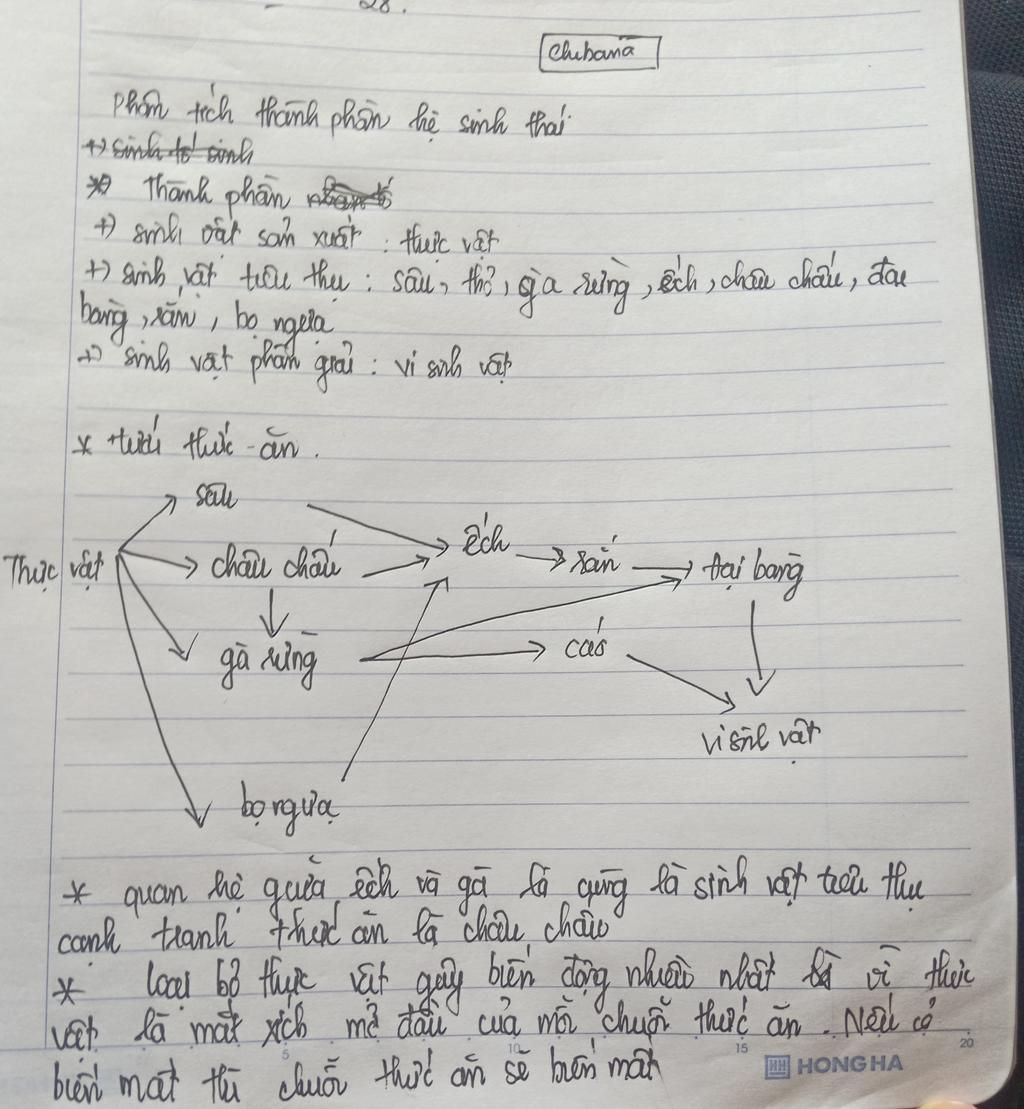 28.
Chibana
Phân tích thành phần hệ sinh thái
+) sinh tố sinh
* Thành phần
+) sinh vật sản xuất : thực vật
+) sinh vật tiêu thụ : sâu, thỏ, gà rừng, ếch, châu chấu, đại
bàng, rắn, bọ ngựa
+) sinh vật phân giải : vi sinh vật
* lưới thức ăn.
sâu
Thực vật
châu chấu
ếch
rắn
đại bàng
gà rừng
cáo
vi sinh vật
bọ ngựa
* quan hệ giữa ếch và gà là cùng là sinh vật tiêu thụ
cạnh tranh thức ăn là châu chấu
* loại bỏ thực vật gây biến động nhiều nhất vì thực
vật là mắt xích mở đầu của mỗi chuỗi thức ăn. Nếu cỏ
biến mất thì chuỗi thức ăn sẽ biến mất
5 10 15 20
HH HONG HA